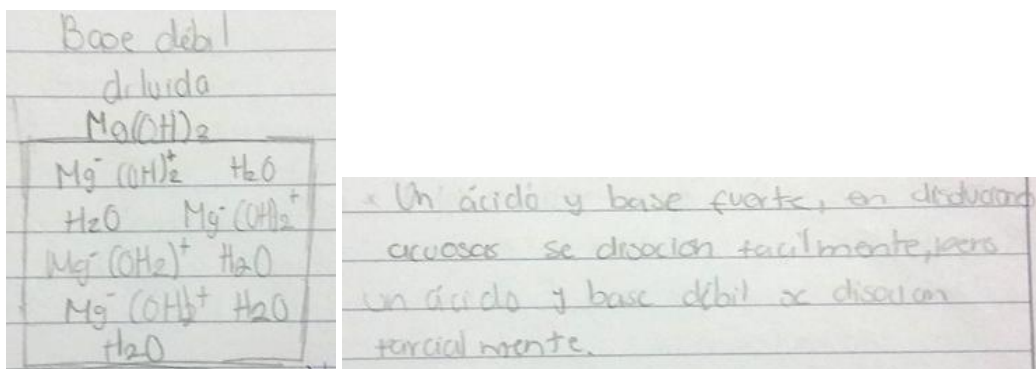 Base débil
diluida
Mg(OH)2
Mg⁻ (OH)₂⁺ H2O
H2O Mg⁻(OH)₂⁺
Mg⁻(OH2)⁺ H2O
Mg⁻ (OH)₂⁺ H2O
H2O
x Un ácido y base fuerte, en
acuosas se disocian facilmente, pero
un ácido y base débil se disocian
parcialmente.